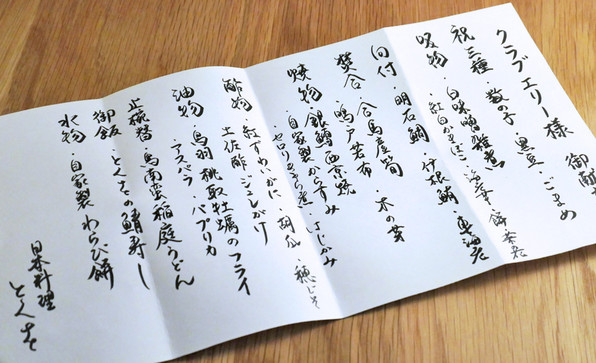 クラブエリー様 御献
祝三種 数の子・黒豆・ごまめ
吸物・白味噌雑煮
・紅白かまぼこ
向付・明石鯛・伊根鮪・車海老
焚合・合馬産筍・木の芽
鳴戸若布
焼物・銀鱈西京焼
・自家製からすみ・はじかみ
・セロリ
酢物・紅ずわいがに・胡瓜・穂じそ
土佐酢ジュレがけ
油物・鳥羽桃取牡蠣のフライ
・アスパラ・パプリカ
止椀替 鳥南蛮稲庭うどん
御飯・とくをの鯖寿し
水物・自家製わらび餅
日本料理
とくを